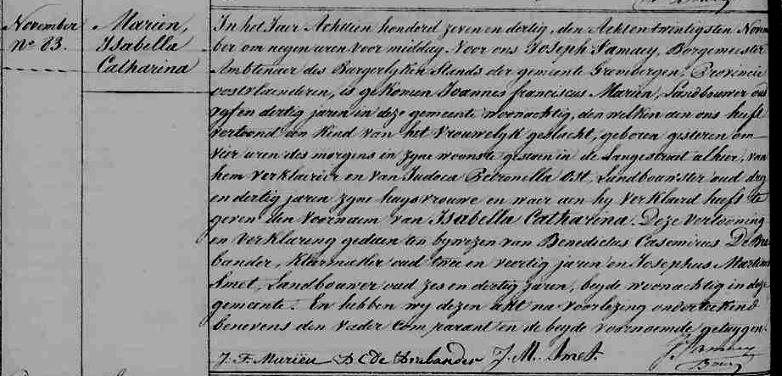 November
N° 83.
Mariën,
Isabella
Catharina
In het Jaer Achtien honderd zeven en dertig, den Acht en twintigsten Novem
ber om negen uren voor middag Voor ons Joseph Samaey, Borgemeester
Ambtenaer des Burgerlyken Stands der gemeente Grembergen, Provincie
oostvlaenderen, is gekomen Joannes franciscus Mariën, Landbouwer oud
vyf en dertig jaren in deze gemeente woonachtig, den welken aen ons heeft
vertoond een Kind van het Vrouwelyk geslacht, geboren gisteren om
vier uren des morgens in zyne woonste gestaen in de Langestraet alhier, van
hem Verklaerder en van Judoca Petronella Ost, Landbouwster oud dry
en dertig jaren zyne huysvrouwe en waer aen hy Verklaerd heeft te
geven den Voornaem van Isabella Catharina. Deze vertooning
en Verklaring gedaen ten bywezen van Benedictus Casemirus De Bra
bander, Kleermaker oud twee en veertig jaren en Josephus Martinus
Smet, Landbouwer oud zes en dertig jaren, beyde woonachtig in deze
gemeente. En hebben wy dezen akt na Voorlezing onderteekend
benevens den Vader Comparant en de beyde voornoemde getuygen.
J. F. Mariën D C De Brabander J. M. Smet.
J Samaey